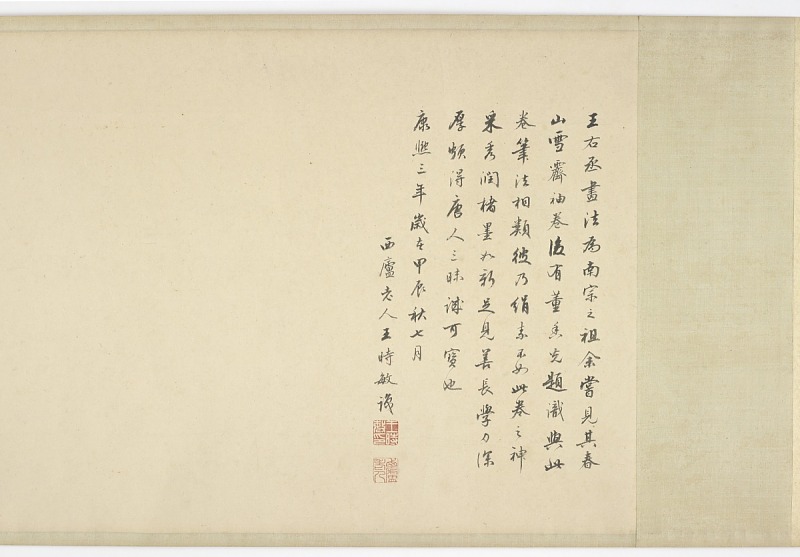 王右丞畫法為南宗之祖余嘗見其春
山雪霽袖卷後有董玄宰題識與此
卷筆法相類彼乃絹素不如此卷之神
采秀潤楮墨如新足見善長學力深
厚頗得唐人三昧誠可寶也
康熙三年歲在甲辰秋七月
西廬老人王時敏識